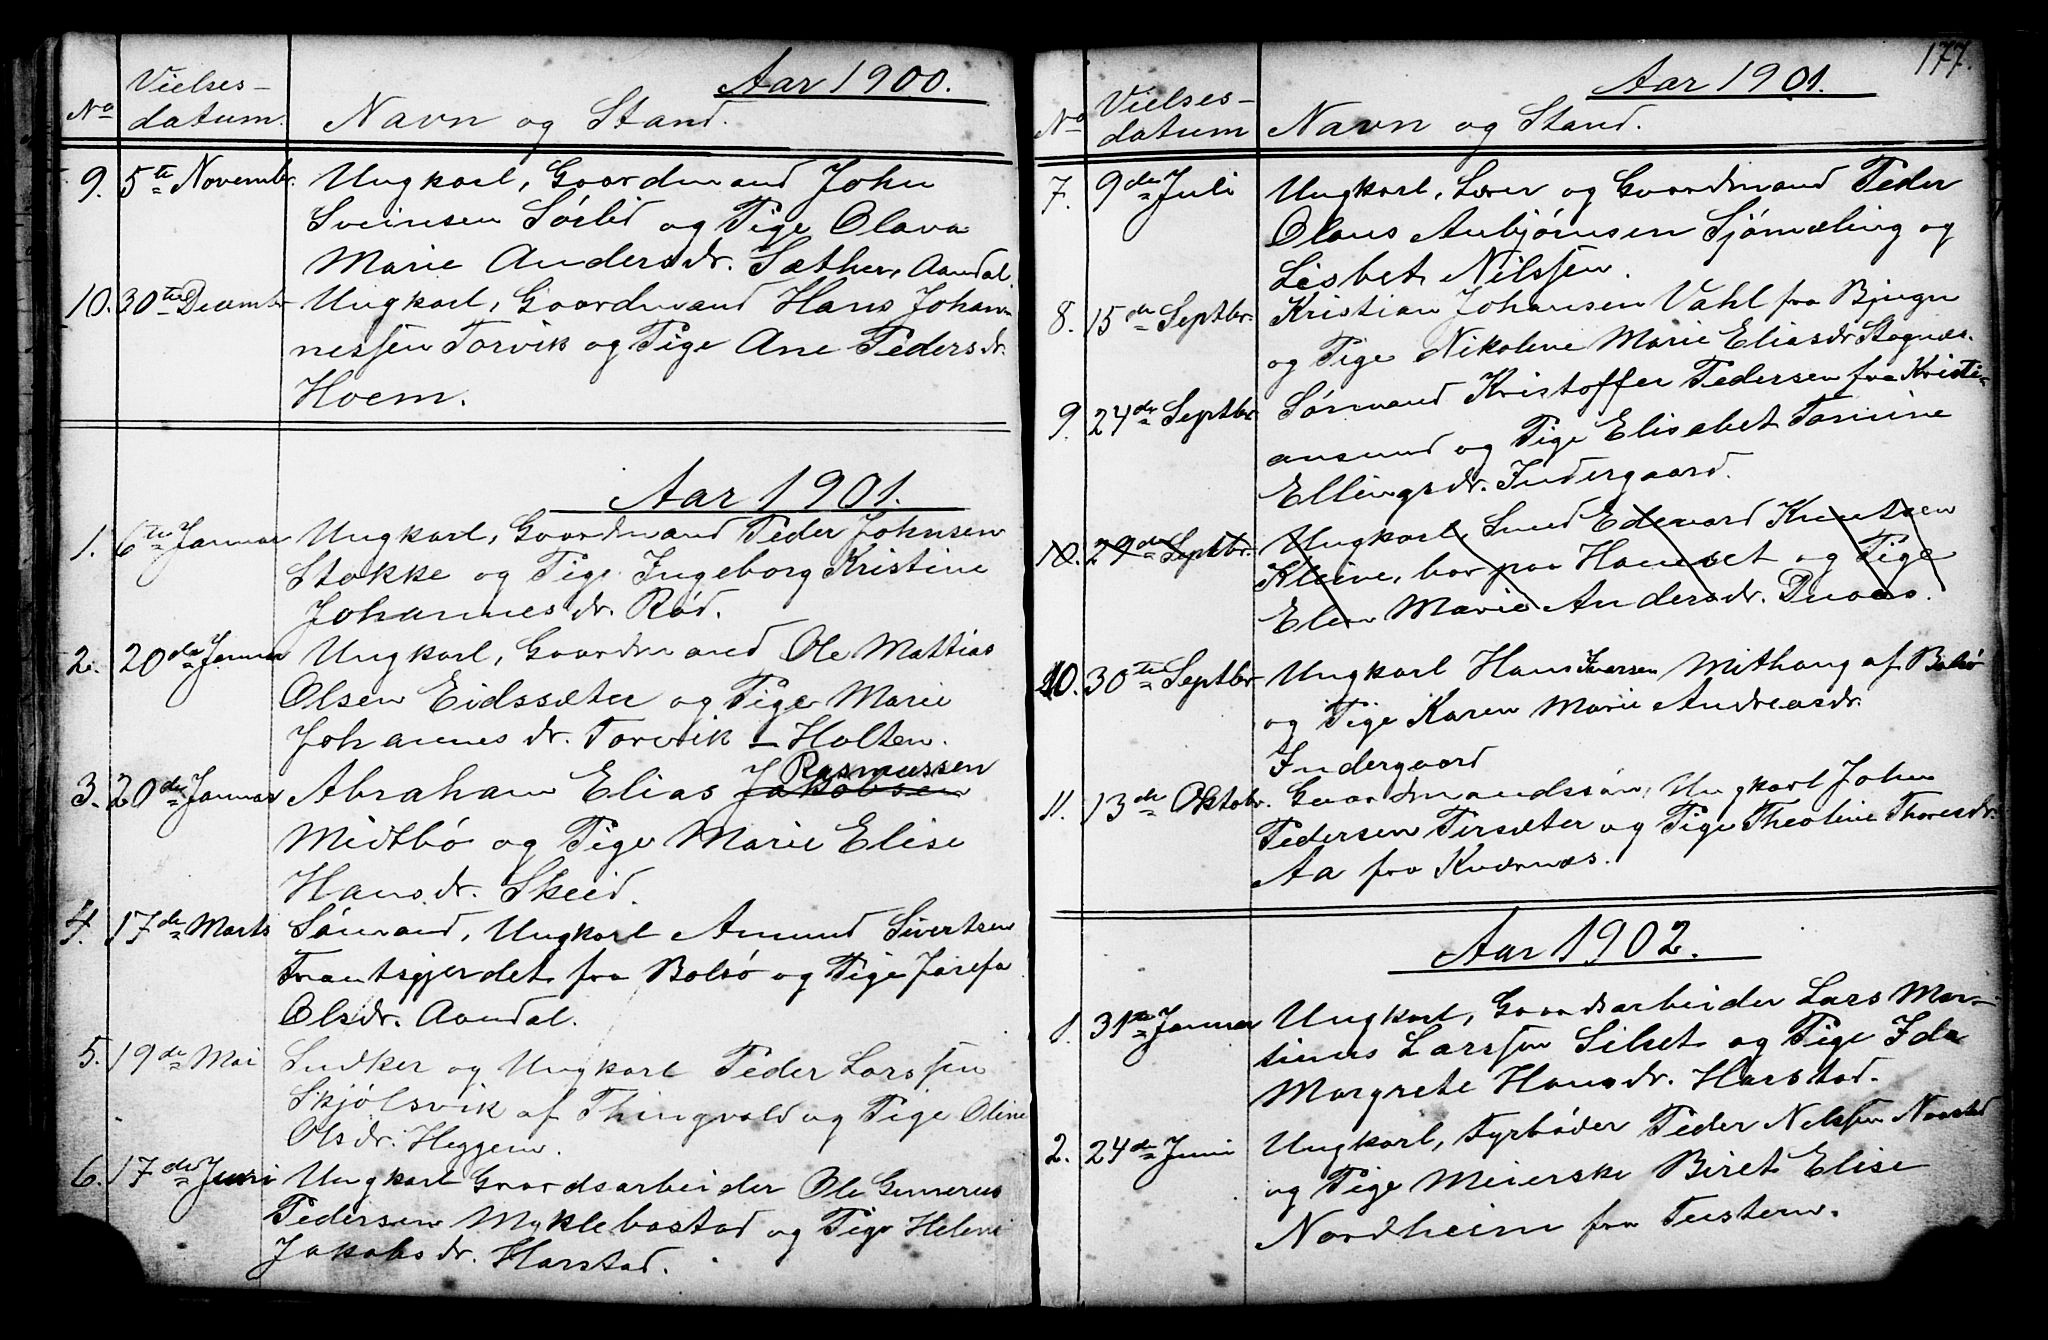 Aar 1900.
No Vielses-
datum. Navn og Stand.
9. 5te Novembr. Ungkarl, Gaardmand John
Sveinsen Sørlid og Pige Olava
Marie Andersdr. Sæther, Aandal.
10. 30te Decembr Ungkarl, Gaardmand Hans Johan-
nessen Torvik og Pige Ane Pedersdr.
Hoem.
Aar 1901.
1. 6te Januar Ungkarl, Gaardmand Peder Johnsen
Stokke og Pige Ingeborg Kristine
Johannesdr. Rød.
2. 20de Januar Ungkarl, Gaardmand Ole Mattias
Olsen Eidssæter og Pige Marie
Johannesdr. Torvik - Holten.
Rasmussen
3. 20de Januar Abraham Elias Jakobsen
Midtbø og Pige Marie Elise
Hansdr. Skeid.
4. 17de Marts Sømand, Ungkarl Amund Sivertsen
Frantsgjerdet fra Bolsø og Pige Josefa
Olsdr. Aandal.
5. 19de Mai Sndker og Ungkarl Peder Larssen
Skjølsvik af Thingvold og Pige Oline
Olsdr. Heggem.
6. 17de Juni Ungkarl Gaardsarbeider Ole Gunerus
Pedersen Myklebostad og Pige Heline
Jakobsdr. Harstad.
177.
Aar 1901.
No Vielses-
datum Navn og Stand.
7. 9de Juli Ungkarl, Lærer og Gaardmand Peder
Olaus Anbjørnsen Sjømæling og
Lisbet Nilssen.
8. 15de Septbr. Kristian Johansen Vahl fra Bjugn
og Pige Nikoline Marie Eliasdr Stognæs.
9. 24de Septbr. Sømand Kristoffer Pedersen fra Kristi-
ansund og Pige Elisabet Tomine
Ellingsdr. Indergaard.
10. 29de Septbr. Ungkarl, Smed Edevard Knutsen
Kleive, bor paa Hamset og Pige
Elen Marie Andersdr.
10. 30te Septbr Ungkarl Hans Iversen Mithaug af Bolsø
og Pige Karen Marie Andreasdr.
Indergaard
11. 13de Oktobr. Gaardmandssøn, Ungkarl John
Pedersen Tersæter og Pige Theoline Thoresdr.
Aa fra Kvernæs.
Aar 1902.
1. 31te Januar Ungkarl, Gaardsarbeider Lars Mar-
tinus Larssen Silset og Pige Ida
Margrete Hansdr. Harstad.
2. 24de Juni Ungkarl, Fyrbøder Peder Nelssen Naastad
og Pige Meierske Biret Elise
Nordheim fra Tustern.